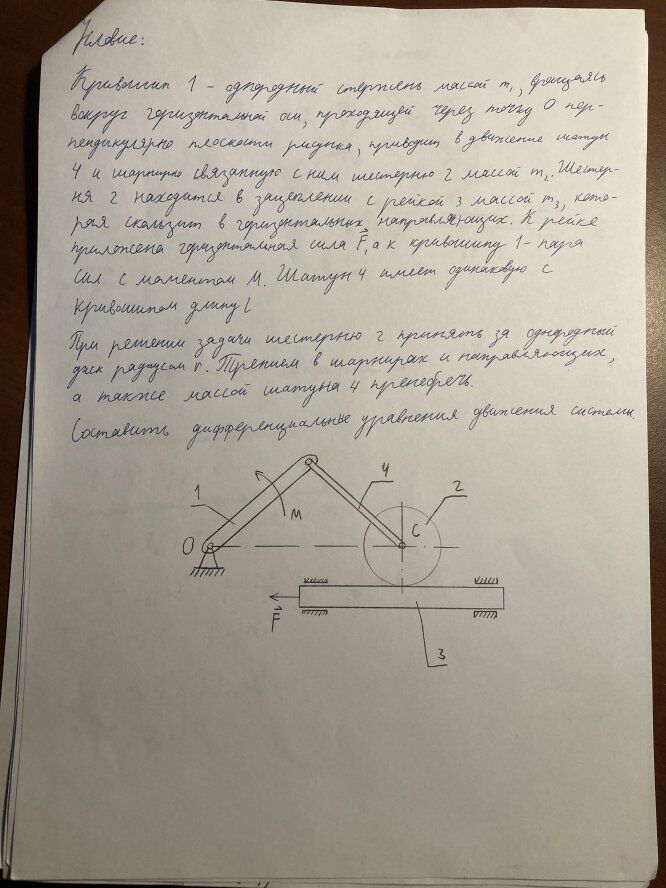 Условие:
Кривошип 1 - однородный стержень массой m₁, вращаясь
вокруг горизонтальной оси, проходящей через точку O пер-
пендикулярно плоскости рисунка, приводит в движение шатун
4 и шарнирно связанную с ним шестерню 2 массой m₂. Шестер-
ня 2 находится в зацеплении с рейкой 3 массой m₃, кото-
рая скользит в горизонтальных направляющих. К рейке
приложена горизонтальная сила F⃗, а к кривошипу 1 - пара
сил с моментом M. Шатун 4 имеет одинаковую с
кривошипом длину l
При решении задачи шестерню 2 принять за однородный
диск радиусом r. Трением в шарнирах и направляющих,
а также массой шатуна 4 пренебречь.
Составить дифференциальные уравнения движения системы.
1
4
2
M
O
C
F⃗
3